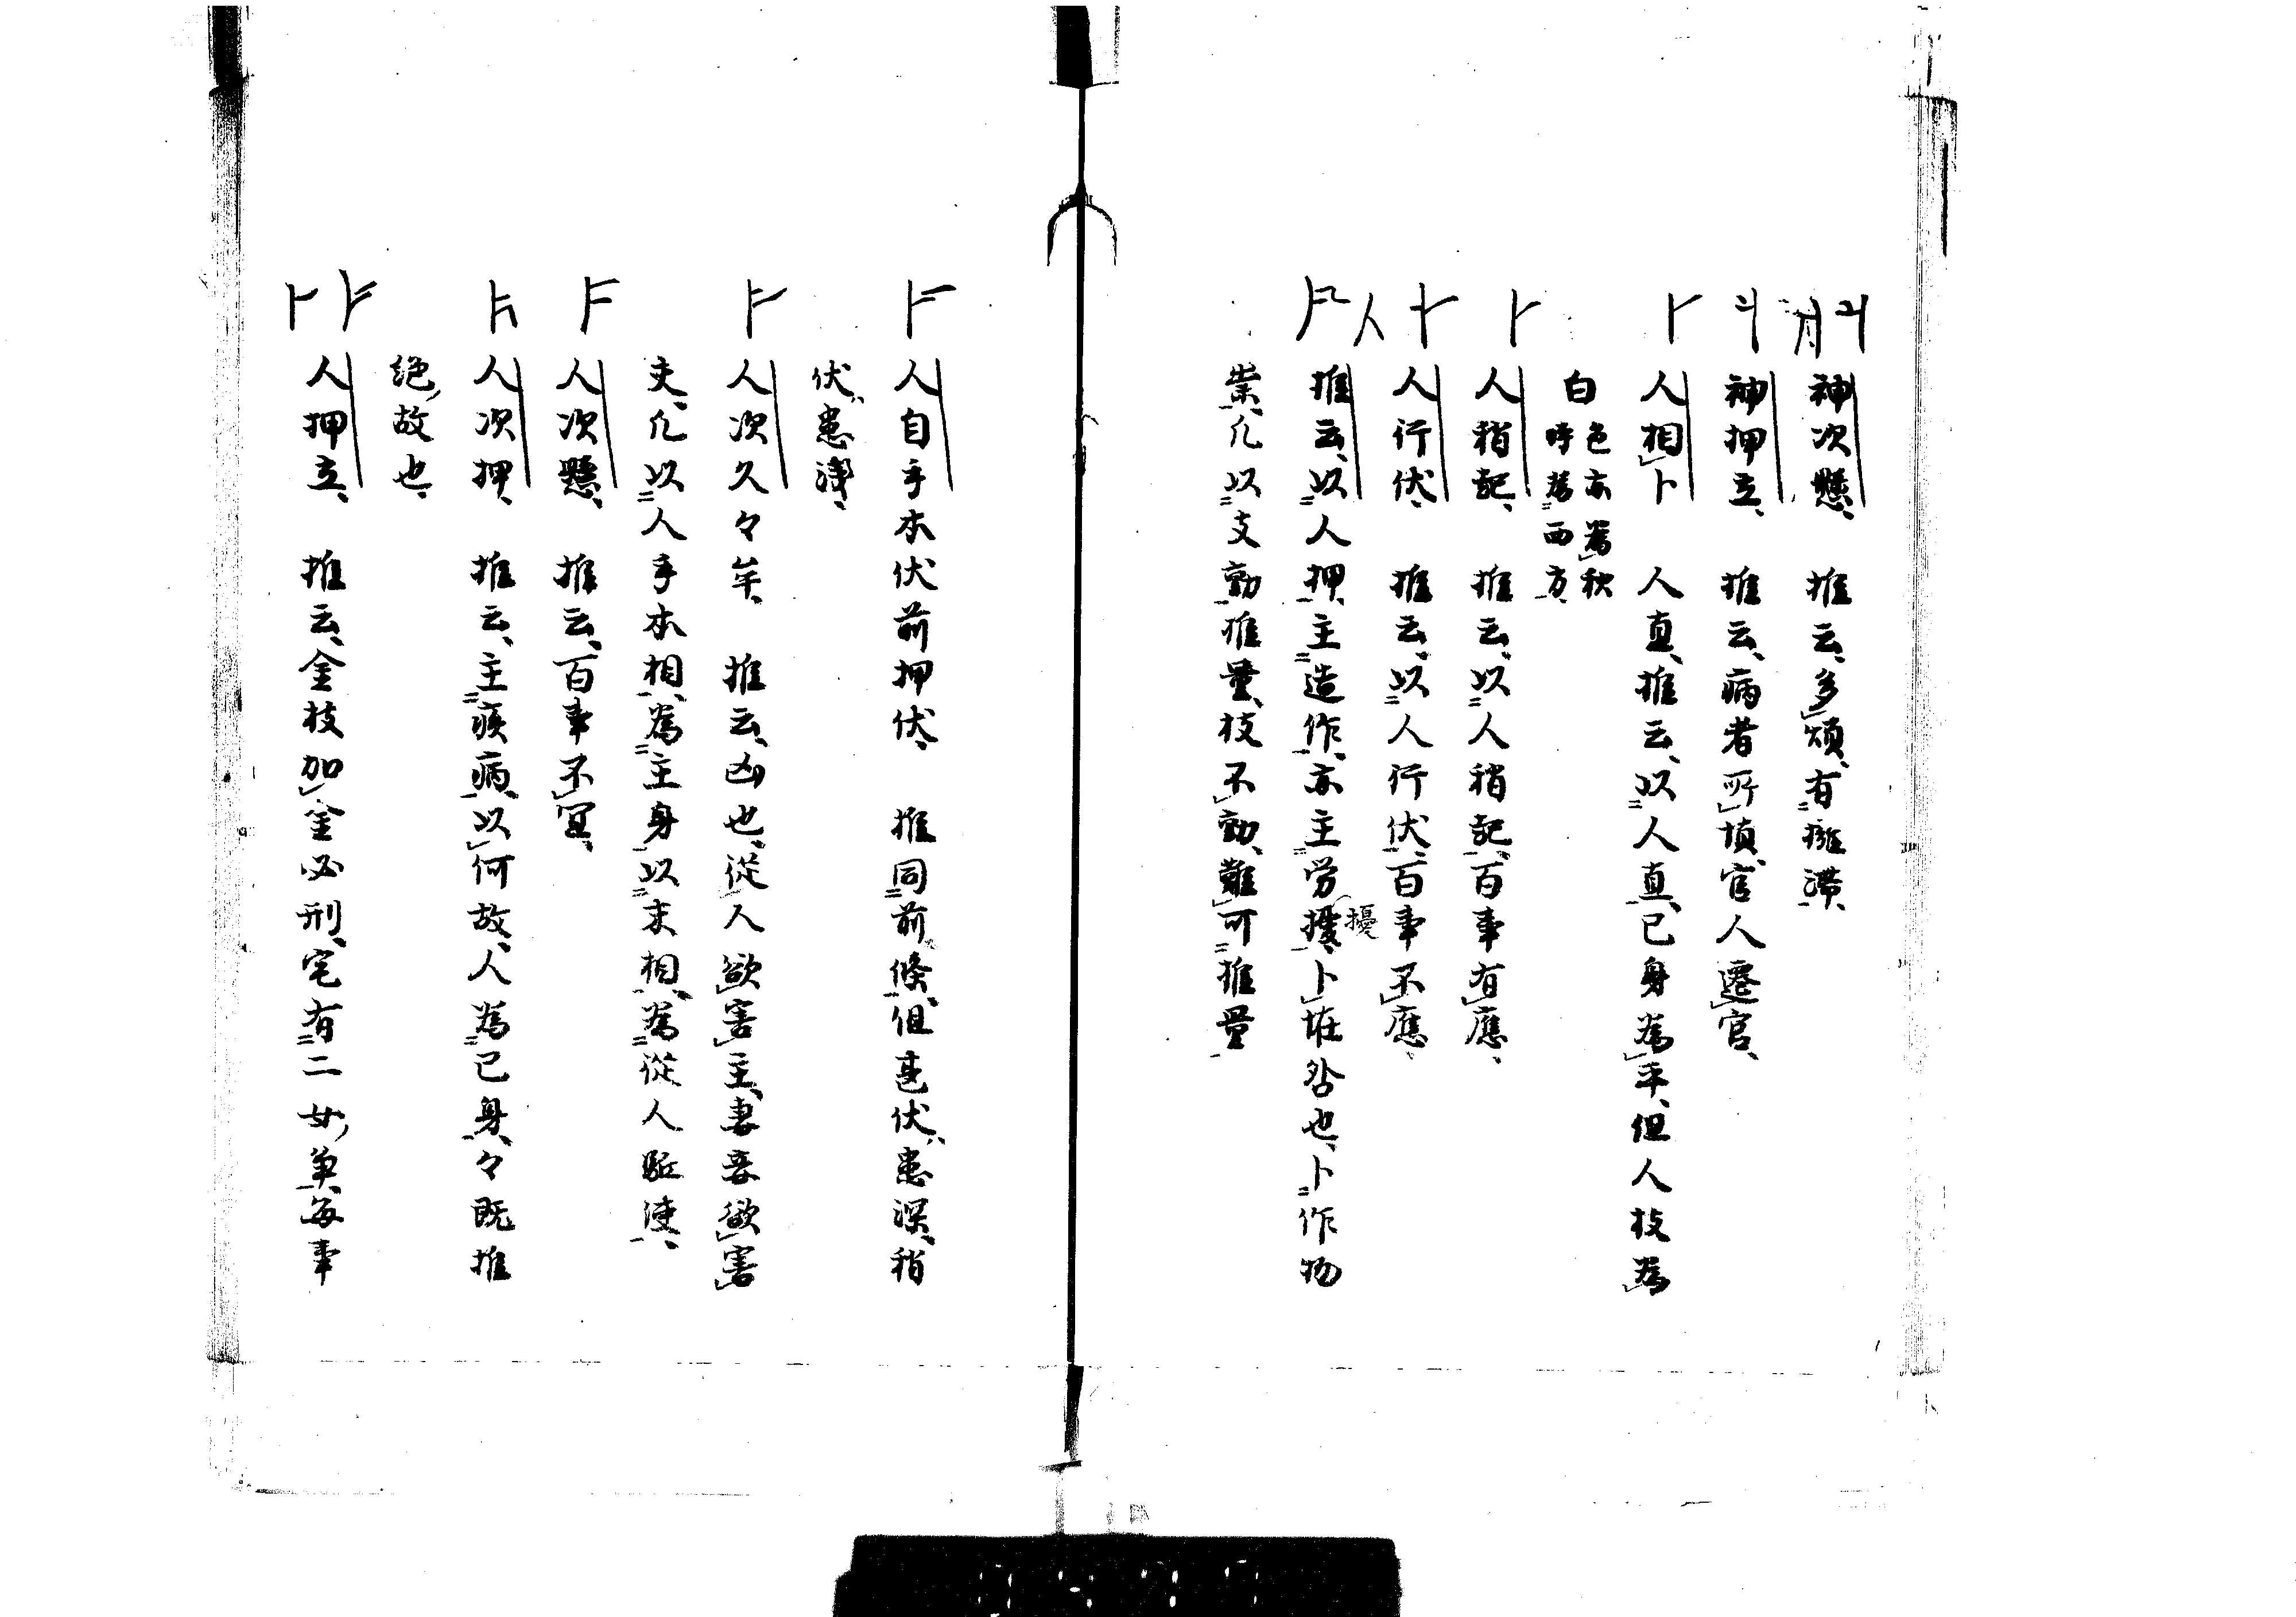 神次懸、　推云、多煩、有擁滞、
神押立、　推云、病者所填、官人遷官、
人相卜　人直、推云、以人直、己身為平、但人枝為
白色亦為秋
時為西方、
人稍記、　推云、以人稍記、百事有應、
人行伏、　推云、以人行伏、百事不應、
推云、以人押、主造作、亦主労擾、卜堆咎也、卜作物
擾
祟、凡以支動推量、枝不動、難可推量
人自手本伏前押伏、　推同前條、但甚伏、患深、稍
伏、患淺、
人次久々矣、　推云、凶也、從人欲害主、妻妾欲害
夫、凡以人手本相、為主身、以末相、為從人駈使、
人次懸、　推云、百事不宜、
人次押、　推云、主疾病、以何故、人為己身、々既推
絶、故也、
人押立、　推云、金枝加金必刑、宅有二女、兼毎事